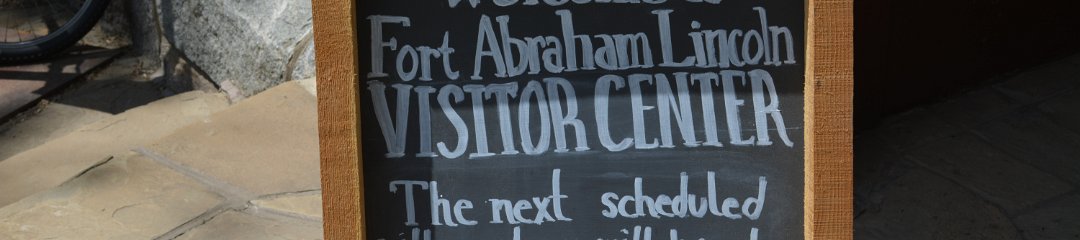 Welcome to
Fort Abraham Lincoln
VISITOR CENTER
The next scheduled